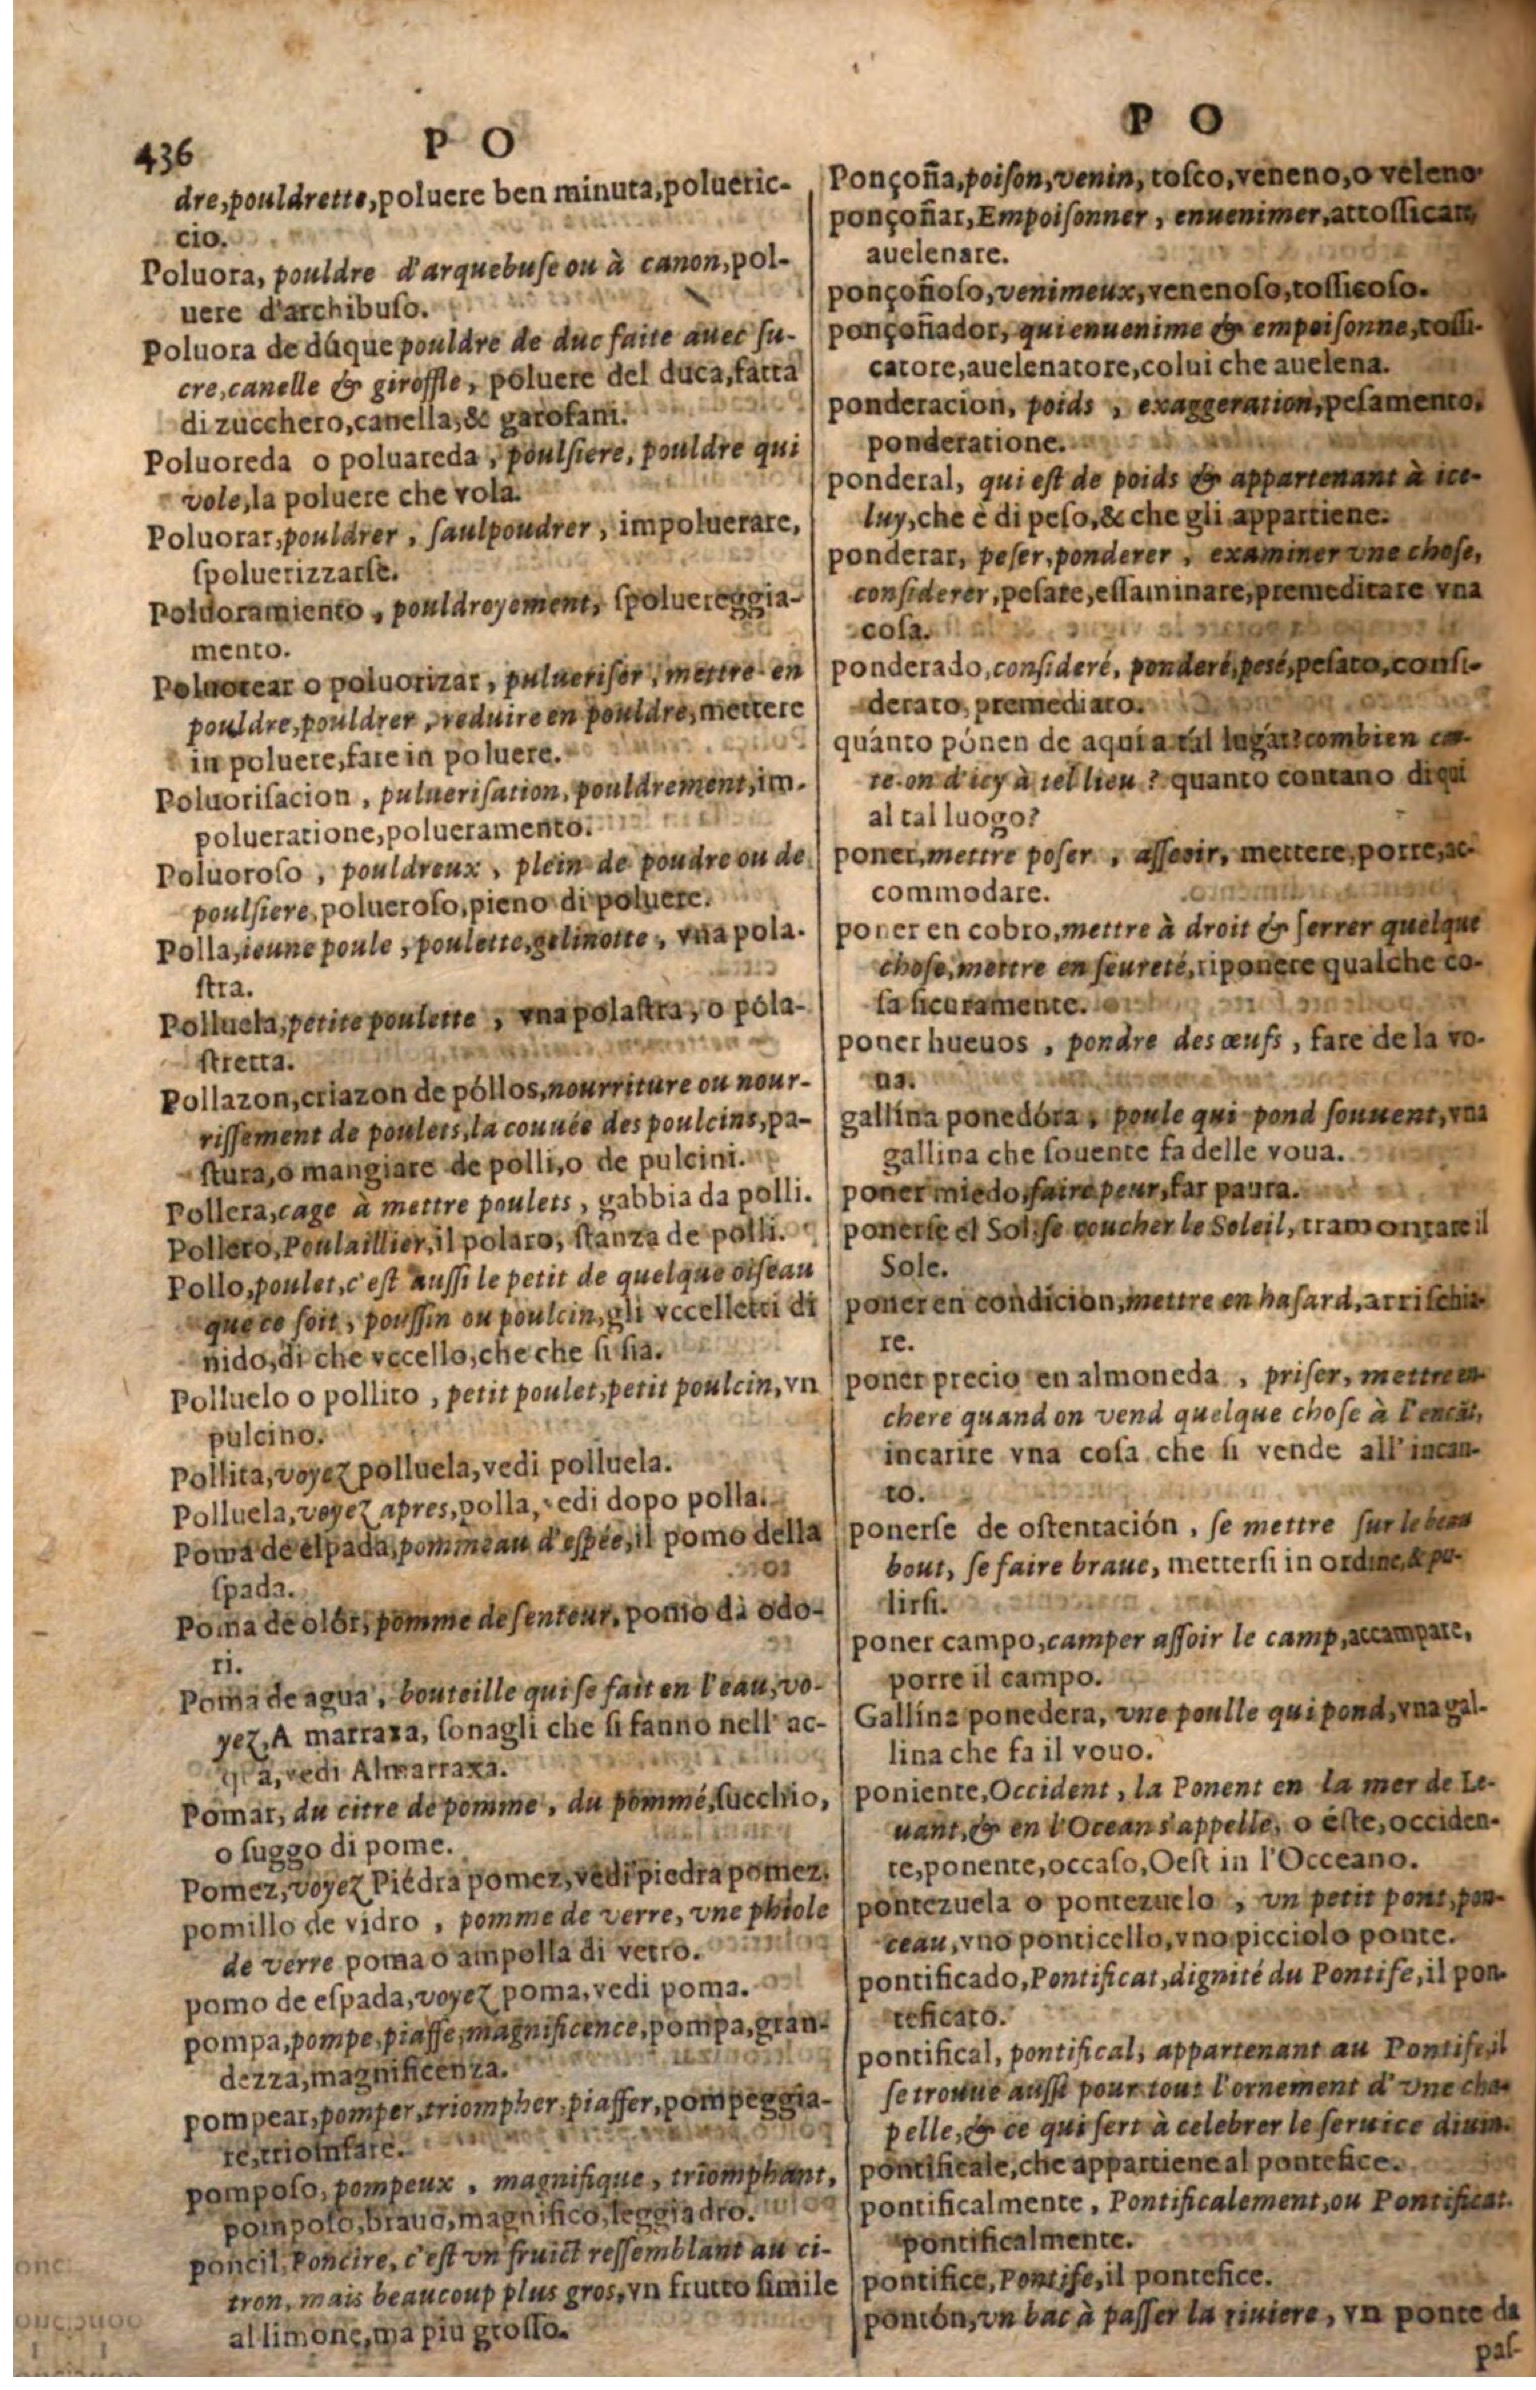 436
P O
dre, pouldrette, poluere ben minuta, polueric-
cio.
Poluora, pouldre d'arquebuse ou à canon, pol-
uere d'archibuso.
Poluora de dúque pouldre de duc faite auec su-
cre, canelle & giroffle, poluere del duca, fatta
di zucchero, canella, & garofani.
Poluoreda o poluareda, poulsiere, pouldre qui
vole, la poluere che vola.
Poluorar, pouldrer, saulpoudrer, impoluerare,
spoluerizzarse.
Poluoramiento, pouldroyement, spoluereggia-
mento.
Poluorear o poluorizar, pulueriser, mettre en
pouldre, pouldrer, reduire en pouldre, mettere
in poluere, fare in poluere.
Poluorisacion, puluerisation, pouldrement, im-
polueratione, polueramento.
Poluoroso, pouldreux, plein de poudre ou de
poulsiere, polueroso, pieno di poluere.
Polla, ieune poule, poulette, gelinotte, vna pola-
stra.
Polluela, petite poulette, vna polastra, o póla-
stretta.
Pollazon, criazon de póllos, nourriture ou nour-
rissement de poulets, la couuée des poulcins, pa-
stura, o mangiare de polli, o de pulcini.
Pollera, cage à mettre poulets, gabbia da polli.
Pollero, Poulaillier, il polaro, stanza de polli.
Pollo, poulet, c'est aussi le petit de quelque oiseau
que ce soit, poussin ou poulcin, gli vccelletti di
nido, di che vccello, che che si sia.
Polluelo o pollito, petit poulet, petit poulcin, vn
pulcino.
Pollita, voyez polluela, vedi polluela.
Polluela, voyez apres, polla, vedi dopo polla.
Poma de espada, pommeau d'espée, il pomo della
spada.
Poma de olór, pomme de senteur, pomo da odo-
ri.
Poma de agua, bouteille qui se fait en l'eau, vo-
yez, A marraxa, sonagli che si fanno nell' ac-
qua, vedi Almarraxa.
Pomar, du citre de pomme, du pommé, succhio,
o suggo di pome.
Pomez, voyez Piédra pomez, vedi piedra pomez.
pomillo de vidro, pomme de verre, vne phiole
de verre poma o ampolla di vetro.
pomo de espada, voyez poma, vedi poma.
pompa, pompe, piaffe, magnificence, pompa, gran-
dezza, magnificenza.
pompear, pomper, triompher, piaffer, pompeggia-
re, triomfare.
pomposo, pompeux, magnifique, triomphant,
pomposo, brauo, magnifico, leggiadro.
poncil, Poncire, c'est vn fruict ressemblant au ci-
tron, mais beaucoup plus gros, vn frutto simile
al limone, ma piu grosso.
P O
Ponçoña, poison, venin, tosco, veneno, o veleno
ponçoñar, Empoisonner, enuenimer, attossicare,
auelenare.
ponçoñoso, venimeux, venenoso, tossicoso.
ponçoñador, qui enuenime & empoisonne, tossi-
catore, auelenatore, colui che auelena.
ponderacion, poids, exaggeration, pesamento,
ponderatione.
ponderal, qui est de poids & appartenant à ice-
luy, che è di peso, & che gli appartiene.
ponderar, peser, ponderer, examiner vne chose,
considerer, pesare, essaminare, premeditare vna
cosa.
ponderado, consideré, ponderé, pesé, pesato, consi-
derato, premediato.
quánto pónen de aquí a tal lugár? combien con-
te-on d'icy à tel lieu? quanto contano di qui
al tal luogo?
poner, mettre poser, asseoir, mettere, porre, ac-
commodare.
poner en cobro, mettre à droit & serrer quelque
chose, mettre en seureté, riponere qualche co-
sa sicuramente.
poner hueuos, pondre des œufs, fare de la vo-
na.
gallína ponedóra, poule qui pond souuent, vna
gallina che souente fa delle voua.
poner miedo, faire peur, far paura.
ponerse el Sol, se coucher le Soleil, tramontare il
Sole.
poner en condicion, mettre en hasard, arrischia-
re.
poner precio en almoneda, priser, mettre en-
chere quand on vend quelque chose à l'encãt,
incarire vna cosa che si vende all' incan-
to.
ponerse de ostentación, se mettre sur le beau
bout, se faire braue, mettersi in ordine, & pu-
lirsi.
poner campo, camper assoir le camp, accampare,
porre il campo.
Gallína ponedera, vne poulle qui pond, vna gal-
lina che fa il vouo.
poniente, Occident, la Ponent en la mer de Le-
uant, & en l'Ocean s'appelle, o éste, occiden-
te, ponente, occaso, Oest in l'Occeano.
pontezuela o pontezuelo, vn petit pont, pon-
ceau, vno ponticello, vno picciolo ponte.
pontificado, Pontificat, dignité du Pontife, il pon-
teficato.
pontifical, pontifical, appartenant au Pontife, il
se trouue aussi pour tout l'ornement d'vne cha-
pelle, & ce qui sert à celebrer le seruice diuin.
pontificale, che appartiene al pontefice.
pontificalmente, Pontificalement, ou Pontificat.
pontificalmente.
pontifice, Pontife, il pontefice.
pontón, vn bac à passer la riuiere, vn ponte da
pas-